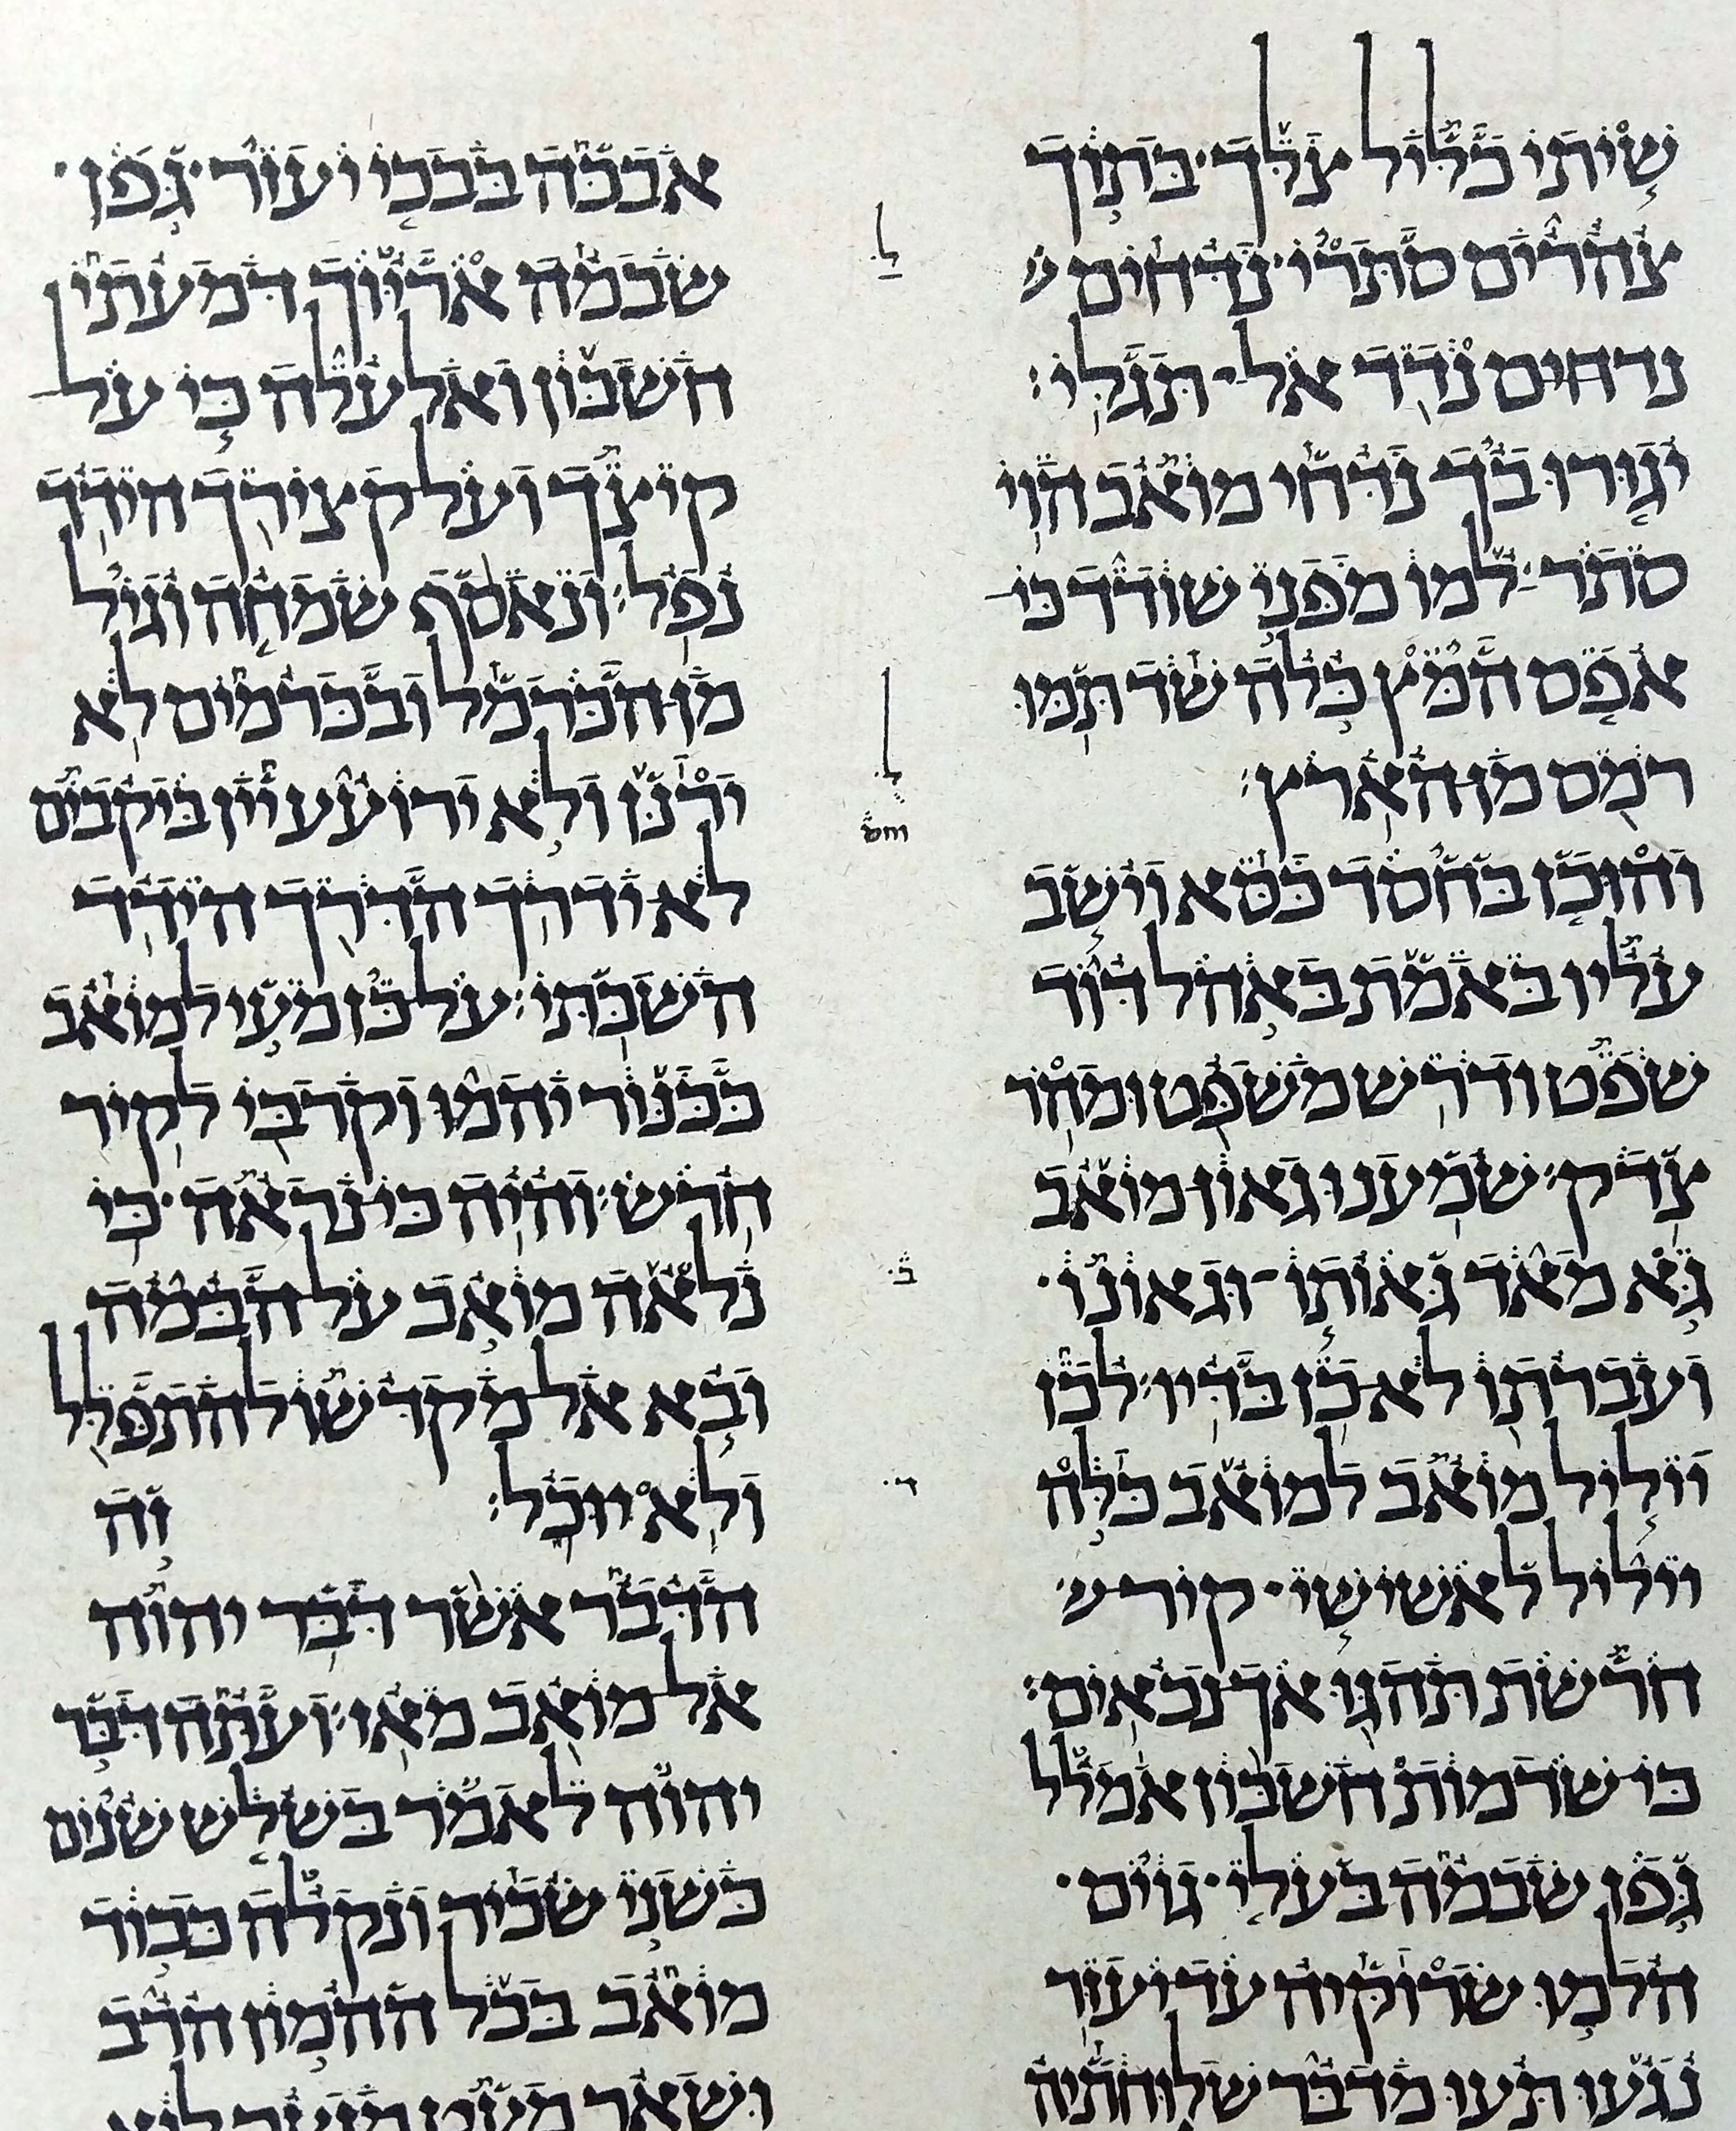 שיתי כליל צלך בתוך
צהרים סתרי נדחים
נדחים נדד אל תגלי׃
יגורו בך נדחי מואב הוי
סתר למו מפני שודד כי
אפס המץ כלה שד תמו
רמס מן הארץ׃
והוכן בחסד כסא וישב
עליו באמת באהל דוד
שפט ודרש משפט ומהר
צדק׃ שמענו גאון מואב
גא מאד גאותו וגאונו
ועברתו לא כן בדיו׃ לכן
ייליל מואב למואב כלה
ייליל לאשישי קיר
חרשת תהגו אך נכאים׃
כי שדמות חשבון אמלל
גפן שבמה בעלי גוים
הלמו שרוקיה עד יעזר
נגעו תעו מדבר שלוחתיה
ל
ל
ב
ד
אבכה בבכי יעזר גפן
שבמה אריוך דמעתי
חשבון ואלעלה כי על
קיצך ועל קצירך הידד
נפל׃ ונאסף שמחה וגיל
מן הכרמל ובכרמים לא
ירנן ולא ירועע יין ביקבים
לא ידרך הדרך הידד
השבתי׃ על כן מעי למואב
ככנור יהמו וקרבי לקיר
חרש׃ והיה כי נראה כי
נלאה מואב על הבמה
ובא אל מקדשו להתפלל
ולא יוכל׃ זה
הדבר אשר דבר יהוה
אל מואב מאז׃ ועתה דבר
יהוה לאמר בשלש שנים
כשני שכיר ונקלה כבוד
מואב בכל ההמון הרב
ושאר מעט מזער לוא